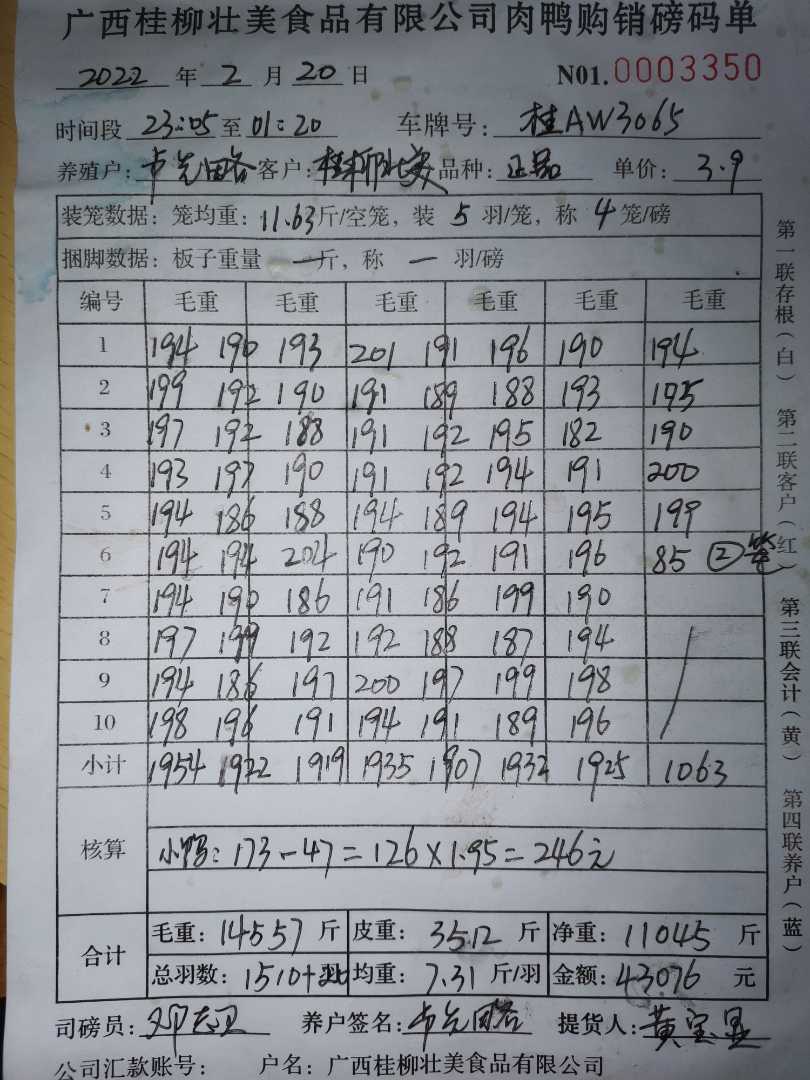 广西桂柳壮美食品有限公司肉鸭购销磅码单
2022 年 2 月 20 日 N01.0003350
时间段 23:05 至 01:20 车牌号: 桂AW3065
养殖户: 客户: 桂柳壮美 品种: 正品 单价: 3.9
装笼数据: 笼均重: 11.63斤/空笼, 装 5 羽/笼, 称 4 笼/磅
捆脚数据: 板子重量 一斤, 称 一 羽/磅
编号 毛重 毛重 毛重 毛重 毛重 毛重
1 194 190 193 201 191 196 190 194
2 199 192 190 191 189 188 193 195
3 197 192 188 191 192 195 182 190
4 193 197 190 191 192 194 191 200
5 194 186 188 194 189 194 195 199
6 194 194 204 190 192 191 196 85 ②笼
7 194 190 186 191 186 199 190
8 197 199 192 192 188 187 194
9 194 186 197 200 197 199 198
10 198 196 191 194 191 189 196
小计 1954 1922 1919 1935 1907 1932 1925 1063
核算
小鸭: 173-47=126×1.95=246元
合计
毛重: 14557 斤 皮重: 3512 斤 净重: 11045 斤
总羽数: 1510+ 羽 均重: 7.31 斤/羽 金额: 43076 元
司磅员: 养户签名: 提货人: 黄宝
公司汇款账号: 户名: 广西桂柳壮美食品有限公司
第一联存根(白) 第二联客户(红) 第三联会计(黄) 第四联养户(蓝)